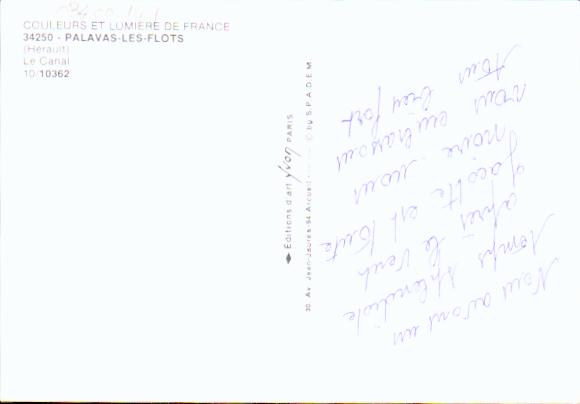 COULEURS ET LUMIÈRE DE FRANCE
34250 - PALAVAS-LES-FLOTS
(Hérault)
Le Canal
10/10362
Editions d'art Yvon PARIS
30, Av. Jean-Jaurès-94 Arcueil © by S.P.A.D.E.M.
Nous avons un
temps splendide
après le vent
est toute
noire. nous
vous embrassons
tous bien fort